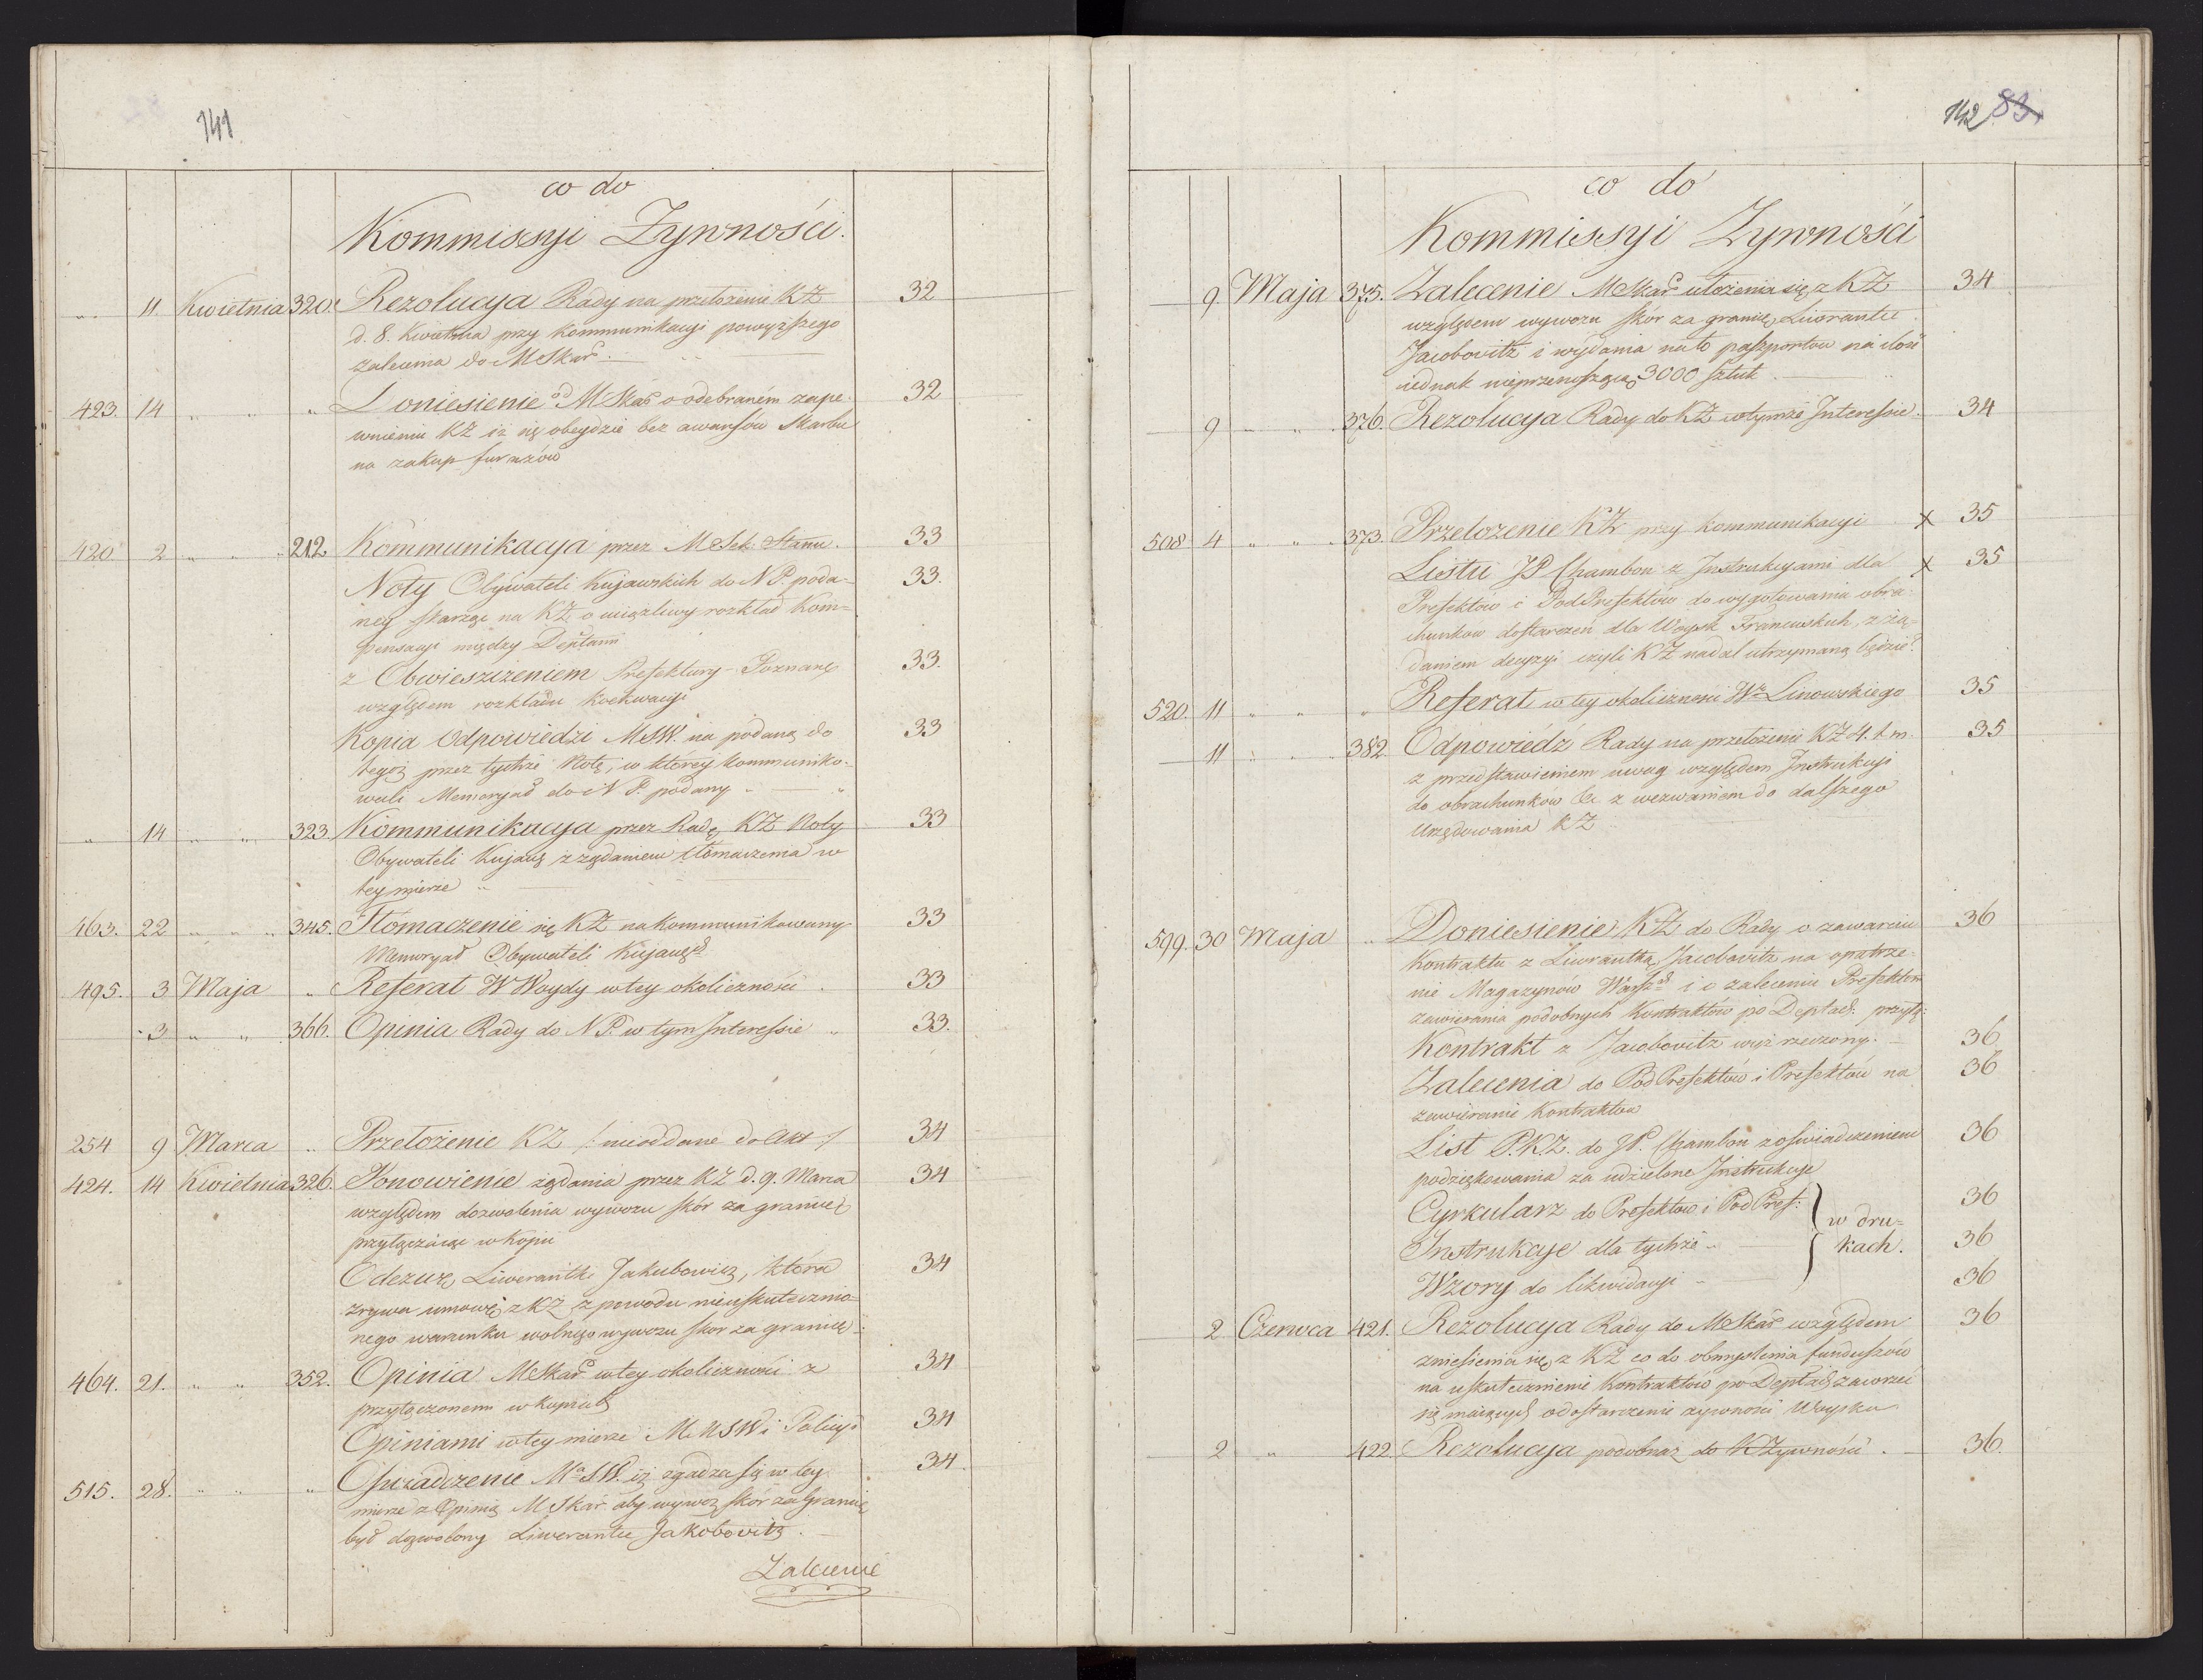 141
co do
Kommissyi Żywności.
„ 11 Kwietnia 320. Rezolucya Rady na przełożenie KŻ 32
d. 8. Kwietnia przy kommunikacyi powyższego
zalecenia do MSkar.
423. 14 „ „ „ Doniesienie od MSkar o odebraném zape- 32
wnieniu KŻ iż się obeydzie bez awansów Skarbu
na zakup furażów
420 2 „ „ 212 Kommunikacya przez MSek. Stanu. 33
Noty Obywateli Kujawskich do NP. poda- 33.
ney skarżąc na KŻ o uciążliwy rozkład Kom-
pensacyi między Deptami
z Obwieszczeniem Prefektury Poznanç 33.
względem rozkładu Koekwacyi
Kopia Odpowiedzi MSW. na podaną do 33
tegoż przez tychże Notę, w którey kommuniko-
wali Memoryał do NP. podany „
„ 14 „ „ 323. Kommunikacya przez Radę KŻ Noty 33
Obywateli Kujawç z żądaniem tłomaczenia w
tey mierze „
463. 22 „ „ 345. Tłomaczenie się KŻ na kommunikowany 33
Memoryał Obywateli Kujawç
495. 3 Maja „ Referat W Woydy w tey okoliczności . 33
3 „ „ 366. Opinia Rady do NP. w tym Interessie „ 33.
254 9 Marca „ Przełożenie KŻ /: nieoddane do Akt :/ 34
424. 14 Kwietnia 326. Ponowienie żądania przez KŻ d. 9. Marca 34
względem dozwolenia wywozu skór za granicę
przyłączaiąc w kopii
Odezwę Liwerantki Jakubowicz, która 34
zrywa umowę z KŻ z powodu nieuskutecznio-
nego warunku wolnego wywozu skor za granicę
464. 21. „ „ 352. Opinia MSkar w tey okoliczności z 34
przyłączonemi w kopiach
Opiniami w tey mierze MSW i Policyi 34
515. 28. „ „ „ Oświadczenie MaSW. iż zgadza się w tey 34
mierze z Opinią MSkar aby wywóz skór za Granicę
był dozwolony Liwerantce Jakobovitz.
Zalecenie
142 83.
co do
Kommissyi Żywności
9 Maja 375. Zalecenie MSkar ułożenia się z KŻ 34
względem wywozu skór za granicę Liwerantce
Jacobovitz i wydania na to paszportów na ilość
iednak nieprzenoszącą 3000 sztuk
9 „ „ 376. Rezolucya Rady do KŻ w tymże Interessie. 34
508 4 „ „ 373. Przełożenie KŻ przy kommunikacyi x 35
Listu JP Chambon z Instrukcyami dla x 35
Prefektów i PodPrefektów do wygotowania obra-
chunków dostarczeń dla Woysk Francuskich, z żą-
daniem decyzyi czyli KŻ nadal utrzymaną będzie?
520. 11 „ „ „ Referat w tey okoliczności Wo Linowskiego 35
11 „ „ 382 Odpowiedź Rady na przełożenie KŻ 4. t. m. 35
z przedstawieniem uwag względem Instrukcyi
do obrachunków &c z wezwaniem do dalszego
Urzędowania KŻ
599. 30 Maja „ Doniesienie KŻ do Rady o zawarciu 36
Kontraktu z Liwerantką Jacobovitz na opatrze-
nie Magazynów Warsz i o zaleceniu Prefektom
zawierania podobnych Kontraktów po Deptach. przyłą:
Kontrakt z Jacobovitz wyż rzeczony. 36
Zalecenia do PodPrefektów i Prefektów na 36
zawieranie Kontraktów
List P.KŻ. do JP. Chambon z oświadczeniem 36
podziękowania za udzielone Instrukcye
Cyrkularz do Prefektów i PodPref: 36
Instrukcye dla tychże „ w dru-
kach. 36
Wzory do likwidacyi „ 36
2 Czerwca 421. Rezolucya Rady do MSkar względem 36
zniesienia się z KŻ co do obmyślenia funduszów
na uskutecznienie Kontraktów po Deptach zawrzeć
się maiących o dostarczenie żywności Woysku.
2 „ 422. Rezolucya podobnaż do KŻywności . 36.